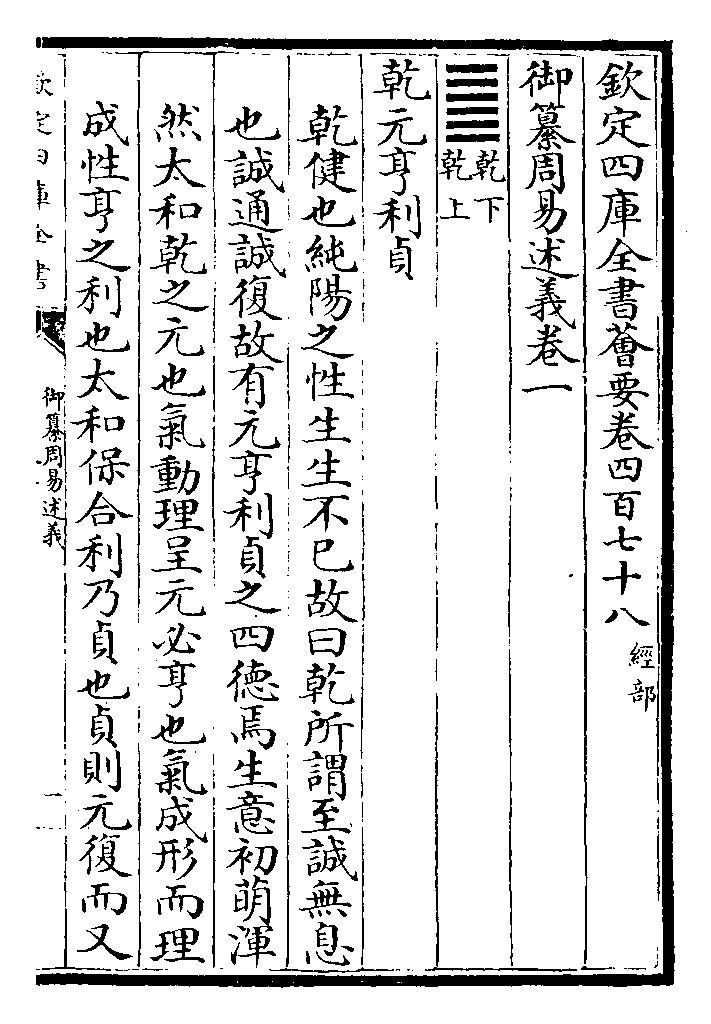 欽定四庫全書薈要卷四百七十八 經部
御纂周易述義卷一
䷀ 乾下
乾上
乾元亨利貞
乾健也純陽之性生生不已故曰乾所謂至誠無息
也誠通誠復故有元亨利貞之四德焉生意初萌渾
然太和乾之元也氣動理呈元必亨也氣成形而理
成性亨之利也太和保合利乃貞也貞則元復而又
欽定四庫全書
御纂周易述義
一